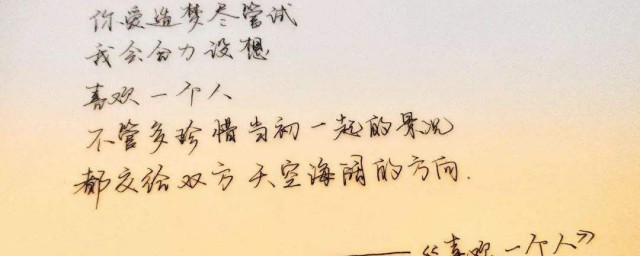 你爱造梦尽尝试
我会合力设想
喜欢一个人
不管多珍惜当初一起的景况
都交给双方天空海阔的方向.
——《喜欢一个人》